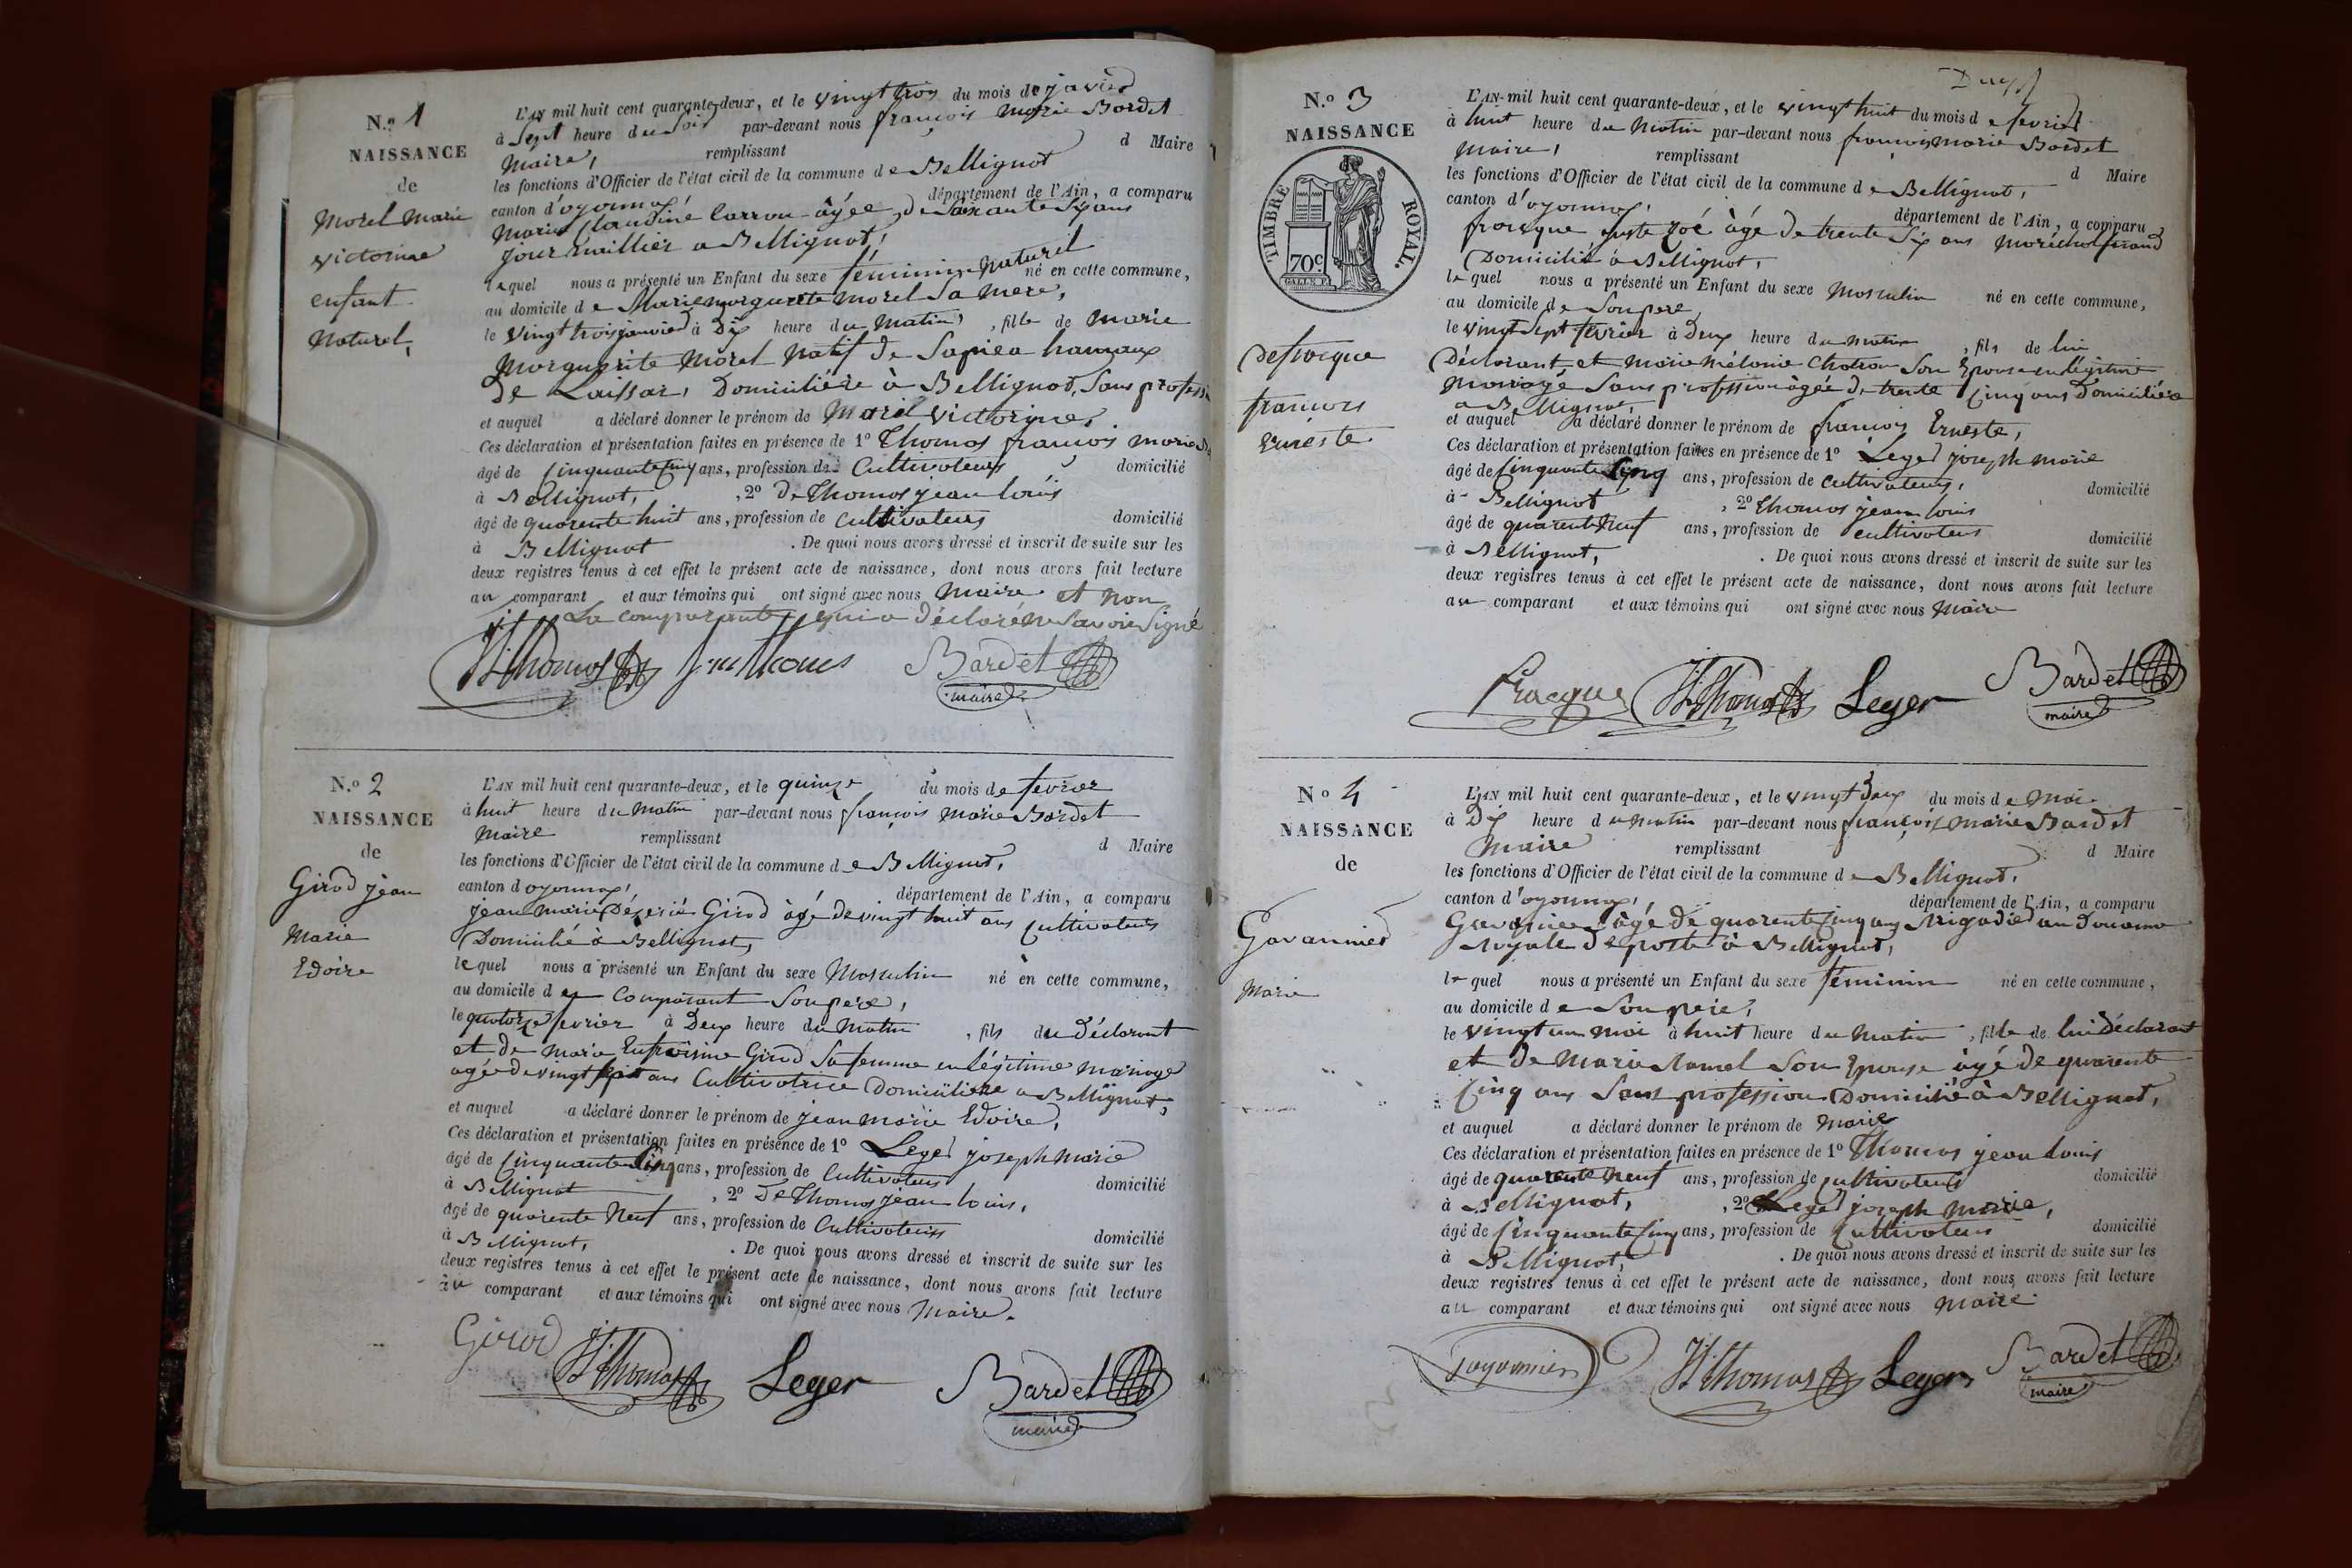 N.o 1
NAISSANCE
de
Morel Marie
victorine
enfant
Naturel,
L'AN mil huit cent quarante-deux, et le vingt trois du mois de janvier
à Sept heure du Soir par-devant nous françois Marie Bardet
Maire, remplissant d Maire
les fonctions d'Officier de l'état civil de la commune de Bellignat
canton d'oyonnax, département de l'Ain, a comparu
Marie Claudine Carron âgée de Soixante Six ans
jour naillier a Bellignat,
laquel nous a présenté un Enfant du sexe féminin Naturel né en cette commune,
au domicile de Marie marguerite Morel Sa mere,
le Vingt trois janvier à Dix heure du Matin, fille de Marie
Marguerite Morel Natif de hamaux
De Domicilière à Bellignat, Sans profession
et auquel a déclaré donner le prénom de Marie victorine,
Ces déclaration et présentation faites en présence de 1o Thomas françois marie
âgé de Cinquante Cinq ans, profession de Cultivateur domicilié
à Bellignat, , 2o de Thomas jean louis
âgé de quarente huit ans, profession de Cultivateur domicilié
à Bellignat . De quoi nous avons dressé et inscrit de suite sur les
deux registres tenus à cet effet le présent acte de naissance, dont nous avons fait lecture
au comparant et aux témoins qui ont signé avec nous Maire et Non
La comparante qui a déclaré ne Savoir Signé
JL Thomas Bardet
maire
N.o 2
NAISSANCE
de
Girod jean
Marie
Edoire
L'AN mil huit cent quarante-deux, et le quinze du mois de fevrier
à huit heure du Matin par-devant nous françois Marie Bardet
Maire remplissant d Maire
les fonctions d'Officier de l'état civil de la commune de Bellignat,
canton d oyonnax, département de l'Ain, a comparu
jean marie Déserié Girod âgé de vingt huit ans Cultivateur
Domicilié à Bellignat,
lequel nous a présenté un Enfant du sexe Masculin né en cette commune,
au domicile d Comparant Son pere,
le quatorze fevrier à Deux heure du Matin , fils du déclarant
et de Marie Girod Sa femme en légitime mariage
agée de vingt ans Cultivatrice Domicilière a Bellignat,
et auquel a déclaré donner le prénom de jean marie Edoire,
Ces déclaration et présentation faites en présence de 1o Leger joseph Marie
âgé de Cinquante Cinq ans, profession de Cultivateur domicilié
à Bellignat , 2o De Thomas jean louis,
âgé de quarente Neuf ans, profession de Cultivateur domicilié
à Bellignat, . De quoi nous avons dressé et inscrit de suite sur les
deux registres tenus à cet effet le présent acte de naissance, dont nous avons fait lecture
au comparant et aux témoins qui ont signé avec nous Maire.
Girod JL Thomas Leger Bardet
maire
N.o 3
NAISSANCE
TIMBRE ROYAL.
70c
françois
Erneste
L'AN mil huit cent quarante-deux, et le vingt huit du mois de fevrier
à huit heure du Matin par-devant nous françois marie Bardet
Maire, remplissant d Maire
les fonctions d'Officier de l'état civil de la commune de Bellignat,
canton d'oyonnax, département de l'Ain, a comparu
juste zoé âgé de trente Six ans Maréchal ferand
Domicilié à Bellignat,
lequel nous a présenté un Enfant du sexe Masculin né en cette commune,
au domicile de Son pere
le vingt Sept fevrier à Deux heure du matin , fils de lui
Déclarant et Marie Mélanie Chatron Son Epouse en légitime
Mariage Sans profession âgée de trente Cinq ans Domicilière
a Bellignat,
et auquel a déclaré donner le prénom de françois Erneste,
Ces déclaration et présentation faites en présence de 1o Leger joseph marie
âgé de Cinquante Cinq ans, profession de Cultivateur, domicilié
à Bellignat , 2o Thomas jean louis
âgé de quarente Neuf ans, profession de cultivateur domicilié
à Bellignat, . De quoi nous avons dressé et inscrit de suite sur les
deux registres tenus à cet effet le présent acte de naissance, dont nous avons fait lecture
au comparant et aux témoins qui ont signé avec nous Maire
Fracque JL Thomas Leger Bardet
maire
No 4
NAISSANCE
de
Gavannier
Marie
L'AN mil huit cent quarante-deux, et le vingt Deux du mois de Mai
à Dix heure du Matin par-devant nous françois Marie Bardet
Maire remplissant d Maire
les fonctions d'Officier de l'état civil de la commune de Bellignat,
canton d'oyonnax, département de l'Ain, a comparu
âgé de quarente Cinq ans Brigadié au Douanne
Royalle De poste à Bellignat,
lequel nous a présenté un Enfant du sexe féminin né en cette commune,
au domicile de Son pere,
le vingt un mai à huit heure du Matin , fille de lui déclarant
et de Marie Son Epouse âgé de quarente
Cinq ans Sans profession Domicilié à Bellignat,
et auquel a déclaré donner le prénom de Marie
Ces déclaration et présentation faites en présence de 1o Thomas jean louis
âgé de quarente Neuf ans, profession de Cultivateur domicilié
à Bellignat, , 2o Leger joseph marie,
âgé de Cinquante Cinq ans, profession de Cultivateur domicilié
à Bellignat, . De quoi nous avons dressé et inscrit de suite sur les
deux registres tenus à cet effet le présent acte de naissance, dont nous avons fait lecture
au comparant et aux témoins qui ont signé avec nous Maire
JL Thomas Leger Bardet
maire